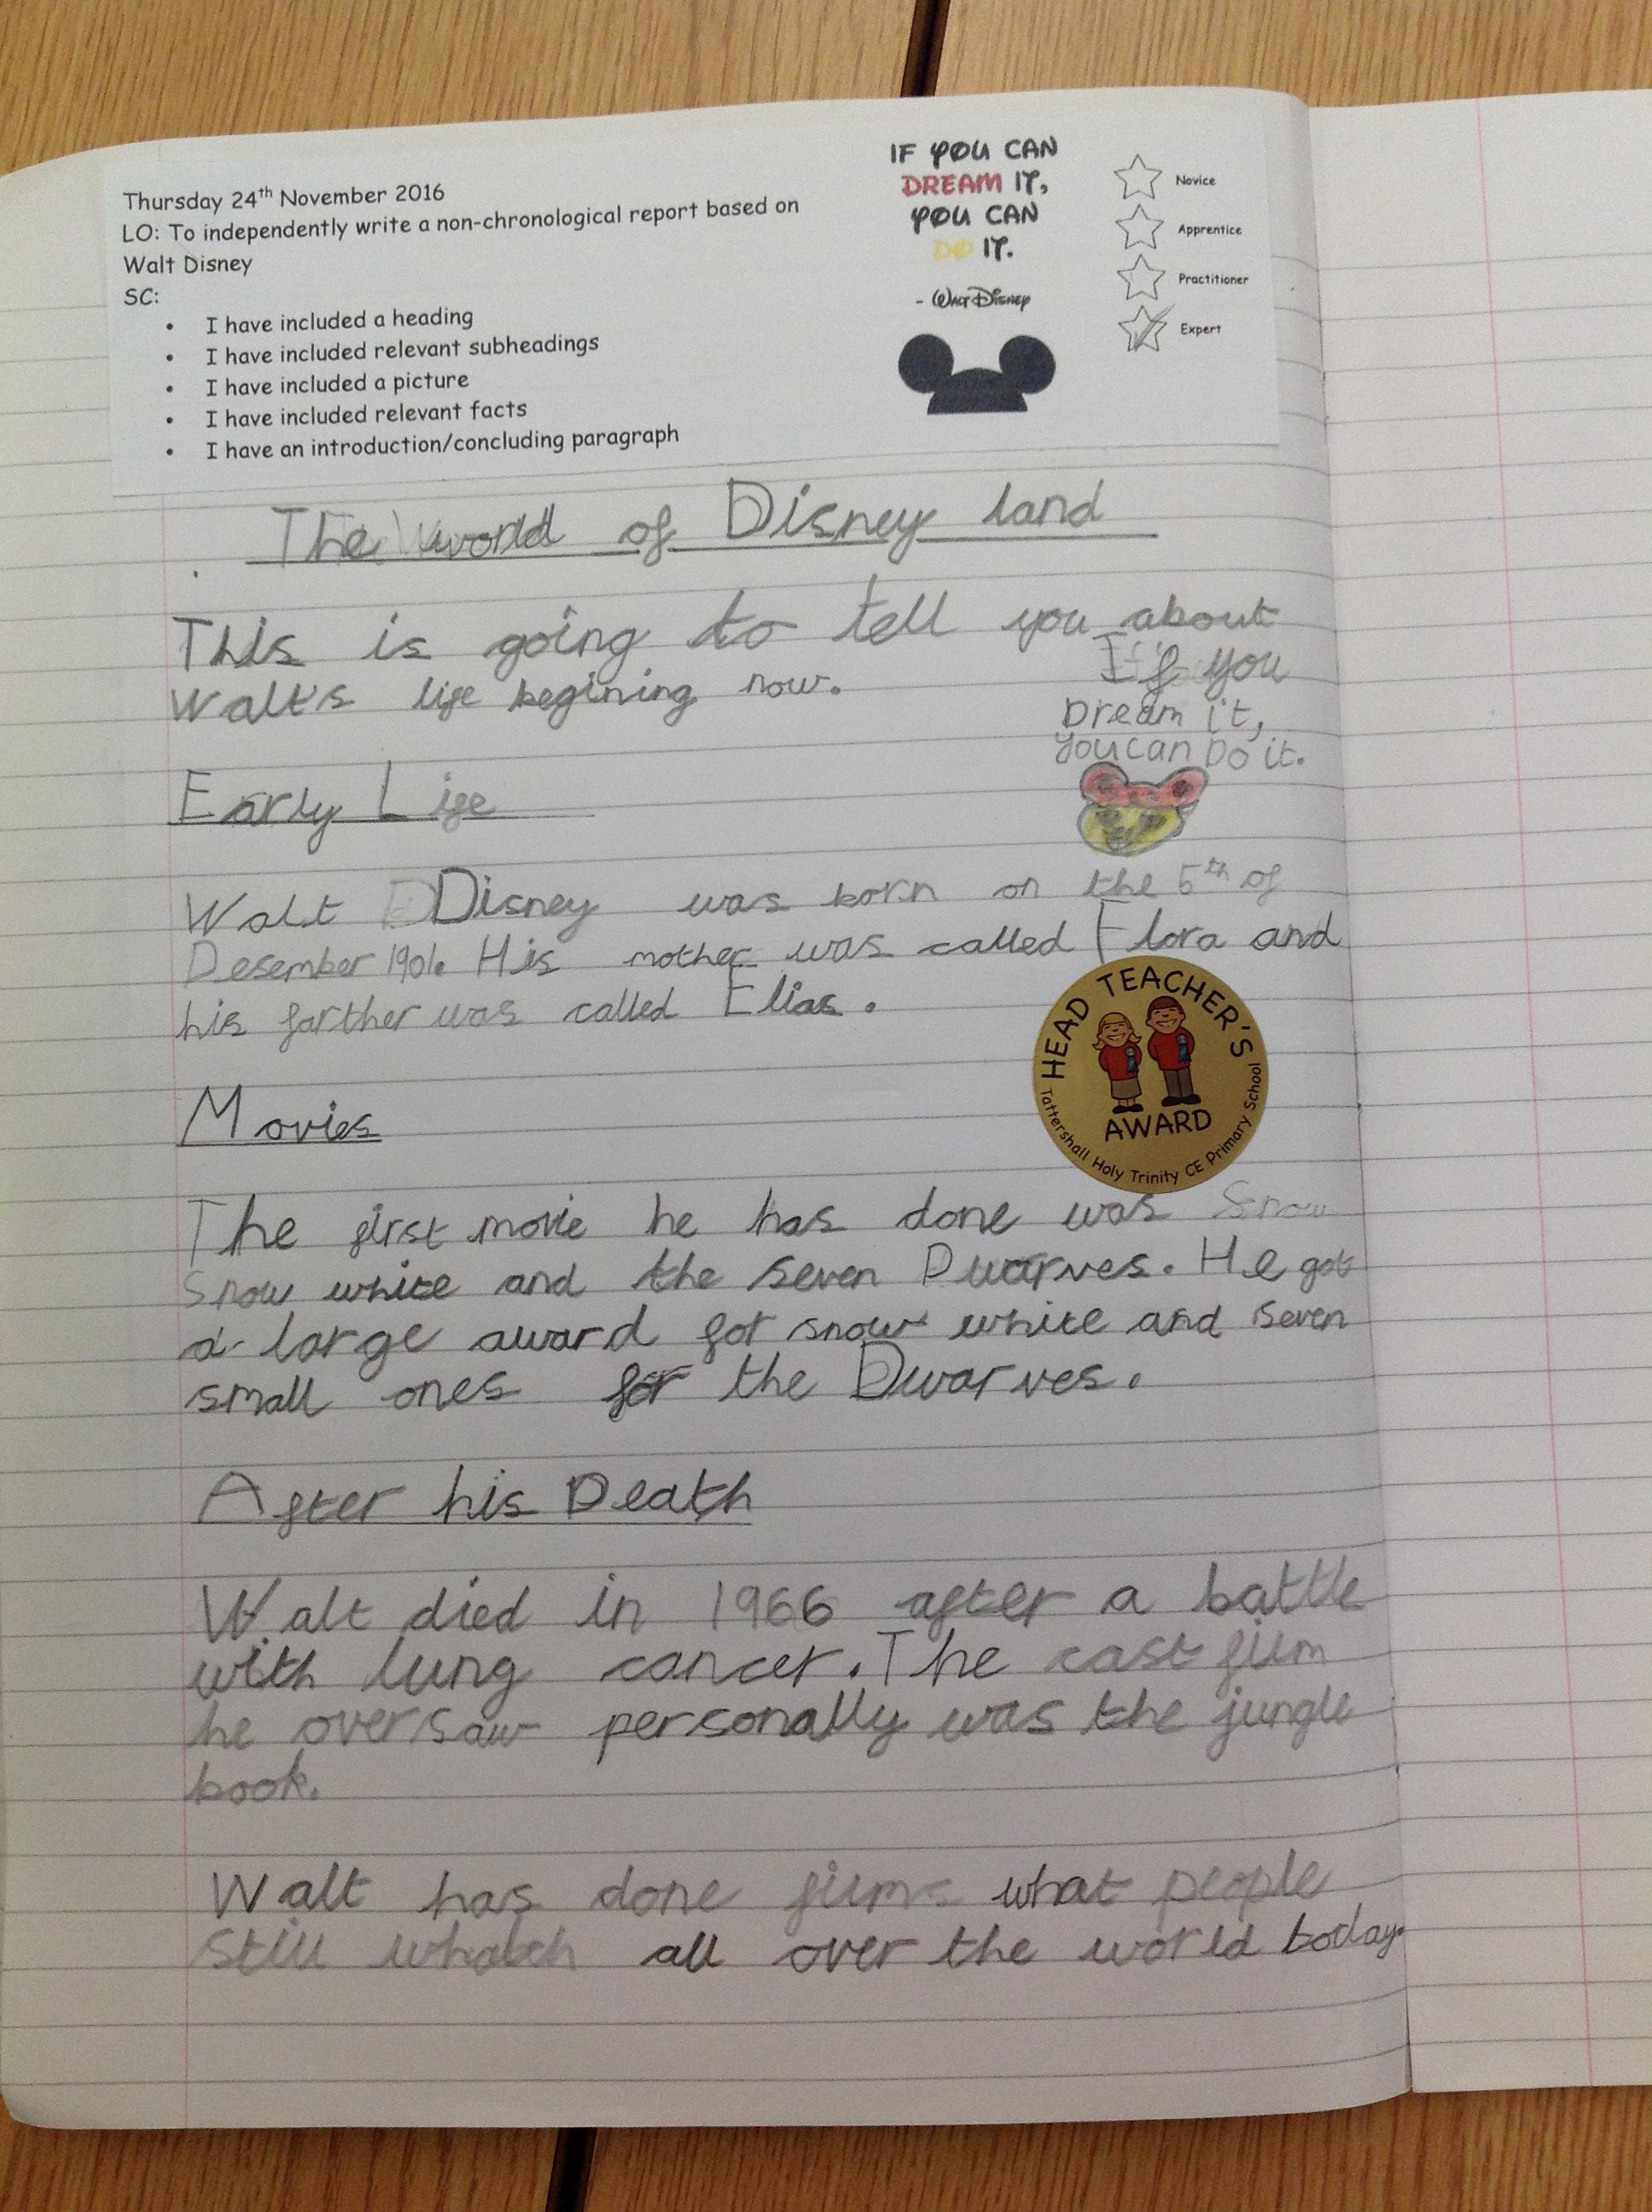 Thursday 24th November 2016
LO: To independently write a non-chronological report based on
Walt Disney
SC:
• I have included a heading
• I have included relevant subheadings
• I have included a picture
• I have included relevant facts
• I have an introduction/concluding paragraph
IF YOU CAN
DREAM IT,
YOU CAN
DO IT.
- WALT DISNEY
Novice
Apprentice
Practitioner
Expert
The world of Disney land
This is going to tell you about
Walt's life begining now.
If you
Dream it,
you can Do it.
Early Life
Walt Disney was born on the 5th of
Desember 1901. His mother was called Flora and
his farther was called Elias.
HEAD TEACHER'S
AWARD
Tattershall Holy Trinity CE Primary School
Movies
The first movie he has done was Snow
Snow white and the seven Dwarves. He got
a large award for snow white and seven
small ones for the Dwarves.
After his Death
Walt died in 1966 after a battle
with lung cancer. The last film
he oversaw personally was the jungle
book.
Walt has done films what people
still whatch all over the world today.